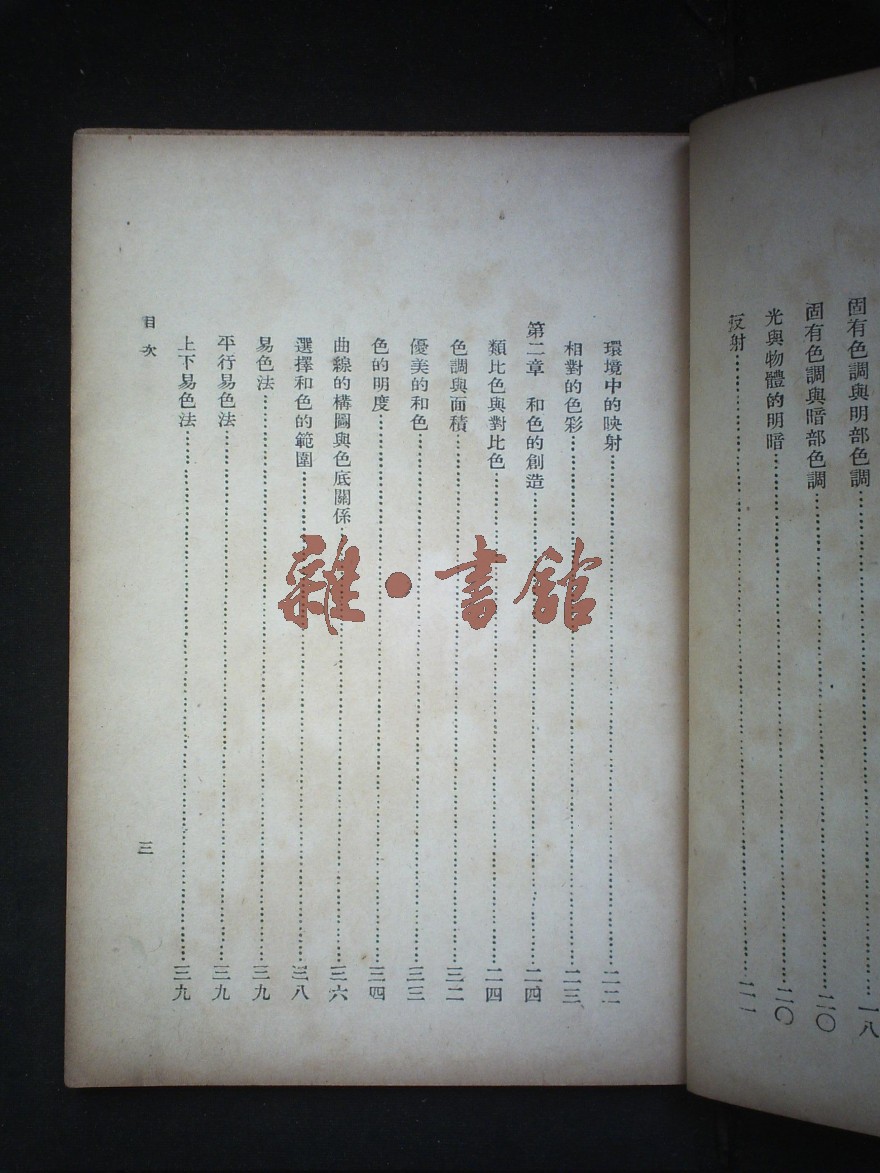 固有色調與明部色調……一八
固有色調與暗部色調……二〇
光與物體的明暗……二〇
反射……二一
環境中的映射……二二
相對的色彩……二三
第二章　和色的創造……二四
類比色與對比色……二四
色調與面積……三二
優美的和色……三三
色的明度……三四
曲線的構圖與色底關係……三六
選擇和色的範圍……三八
易色法……三九
平行易色法……三九
上下易色法……三九
目次
三
雜·書館